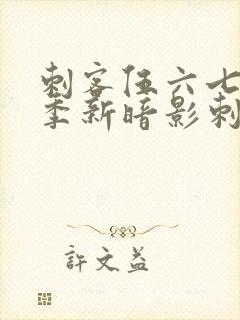 刺客伍六七
季新暗影刺
許文益